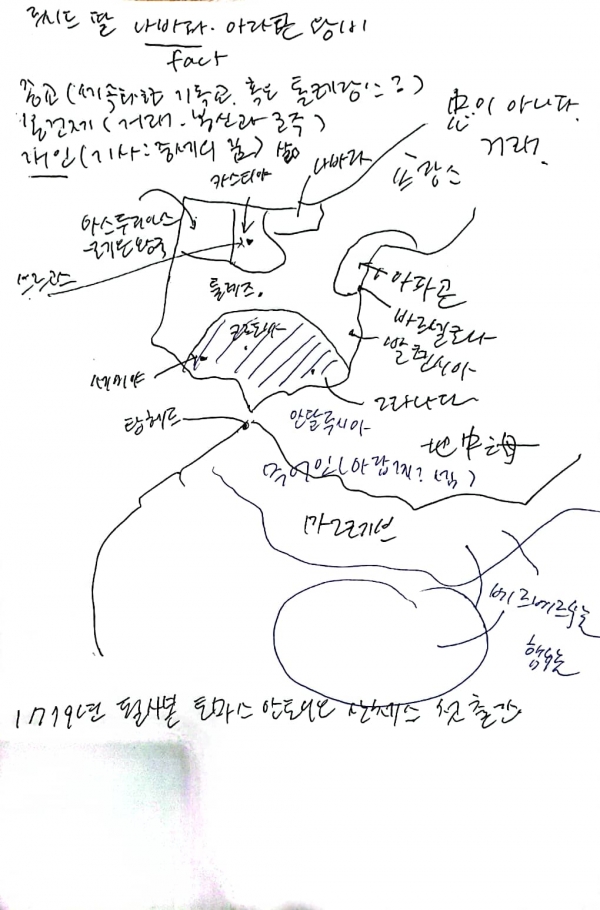 루시드 딸 나바라. 아라곤 왕비
fact
종교(세속화한 기독교. 혹은 톨레랑스?)
봉건제(거래. 복신과 군주)
개인(기사: 중세의 꿈) 삶
忠이 아니다.
거래.
카스티야
나바라
프랑스
아스투리아스
레온왕국
부르고스
톨레도.
아라곤
바르셀로나
발렌시아
코르도바
세비야
그라나다
탕헤르
안달루시아
地中海
무어인(아랍
마그레브
베르베르족
1779년 필사본 토마스 안토니오 산체스 첫 출간